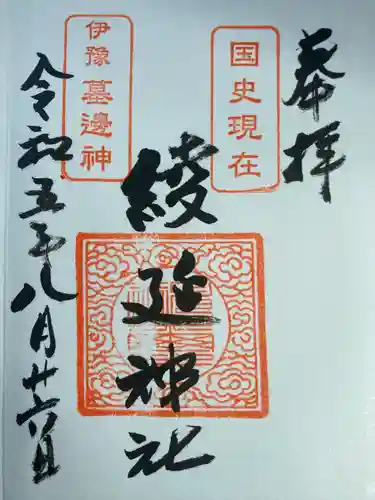 奉拝
国史現在
綾延神社
伊豫
墓邊神
令和五年八月廿六日